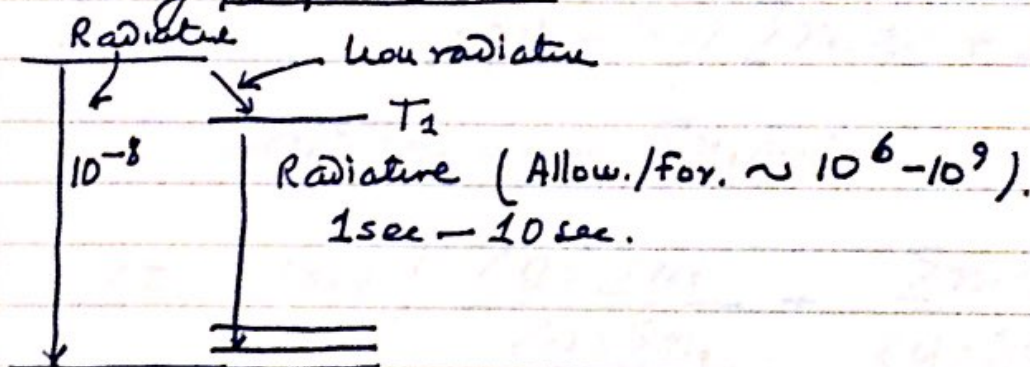 Radiative
Non radiative
T1
10⁻⁸
Radiative (Allow./For. ~ 10⁶-10⁹).
1sec - 10 sec.